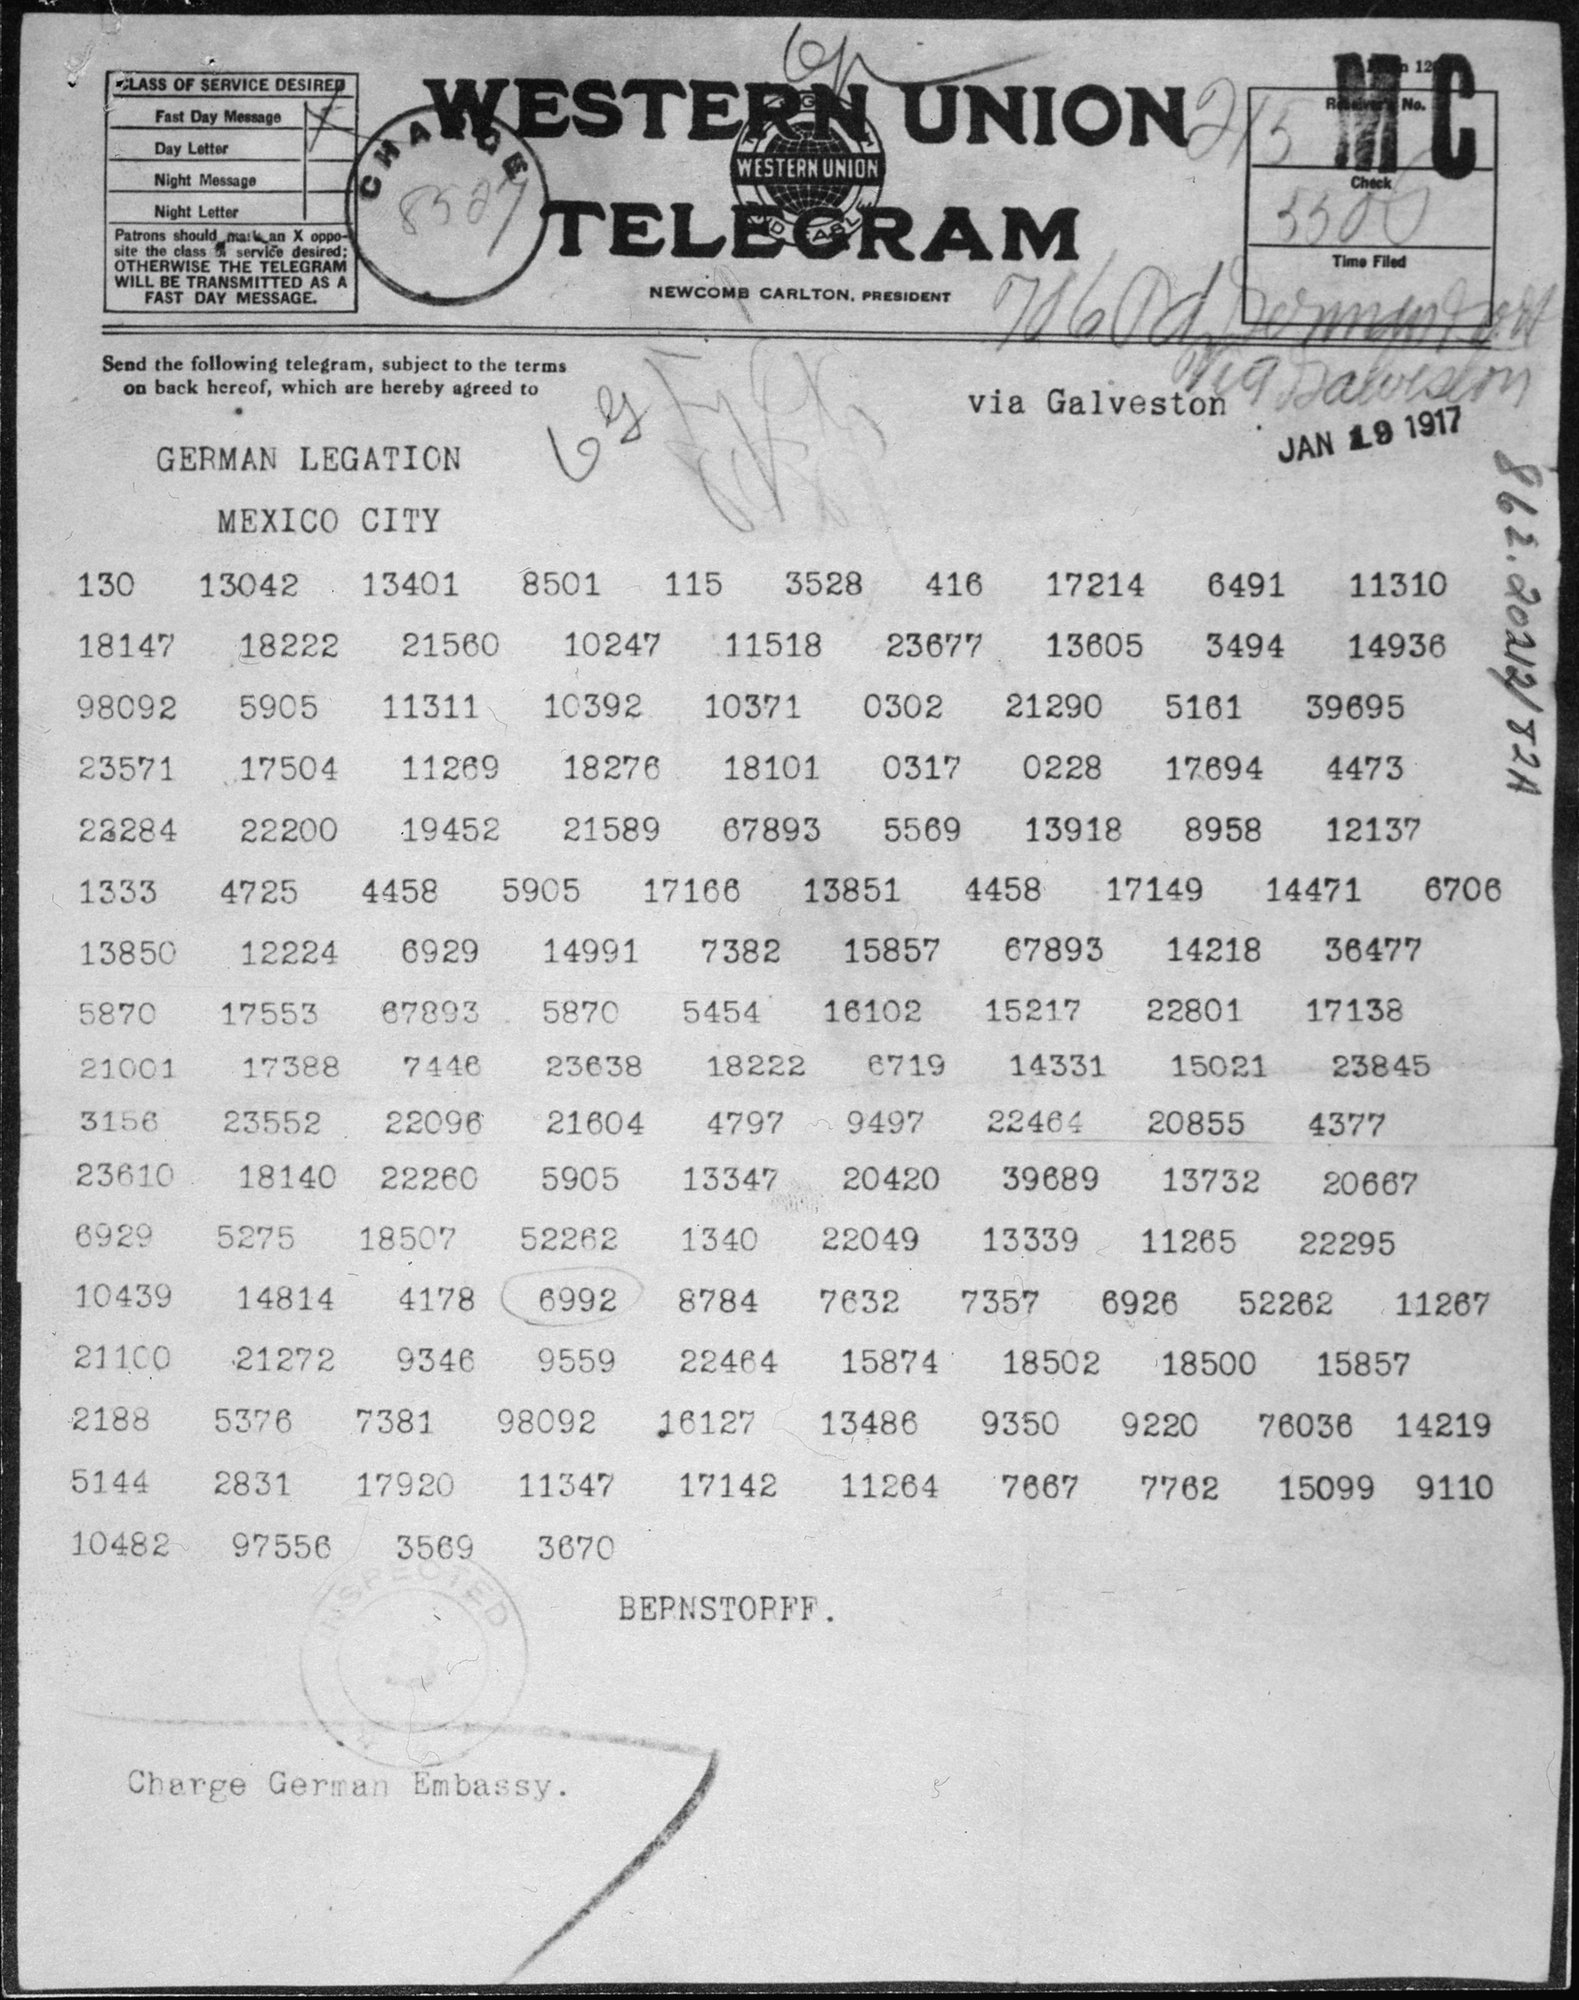 CLASS OF SERVICE DESIRED
Fast Day Message
Day Letter
Night Message
Night Letter
Patrons should mark an X oppo-
site the class of service desired:
OTHERWISE THE TELEGRAM
WILL BE TRANSMITTED AS A
FAST DAY MESSAGE.
CHARGE
WESTERN UNION
WESTERN UNION
TELEGRAM
NEWCOMB CARLTON, PRESIDENT
MC
Receiver's No.
Check
Time Filed
Send the following telegram, subject to the terms
on back hereof, which are hereby agreed to
via Galveston
via Galveston
JAN 19 1917
GERMAN LEGATION
MEXICO CITY
130 13042 13401 8501 115 3528 416 17214 6491 11310
18147 18222 21560 10247 11518 23677 13605 3494 14936
98092 5905 11311 10392 10371 0302 21290 5161 39695
23571 17504 11269 18276 18101 0317 0228 17694 4473
22284 22200 19452 21589 67893 5569 13918 8958 12137
1333 4725 4458 5905 17166 13851 4458 17149 14471 6706
13850 12224 6929 14991 7382 15857 67893 14218 36477
5870 17553 67893 5870 5454 16102 15217 22801 17138
21001 17388 7446 23638 18222 6719 14331 15021 23845
3156 23552 22096 21604 4797 9497 22464 20855 4377
23610 18140 22260 5905 13347 20420 39689 13732 20667
6929 5275 18507 52262 1340 22049 13339 11265 22295
10439 14814 4178 6992 8784 7632 7357 6926 52262 11267
21100 21272 9346 9559 22464 15874 18502 18500 15857
2188 5376 7381 98092 16127 13486 9350 9220 76036 14219
5144 2831 17920 11347 17142 11264 7667 7762 15099 9110
10482 97556 3569 3670
BERNSTORFF.
INSPECTED
Charge German Embassy.
862.20212/82A